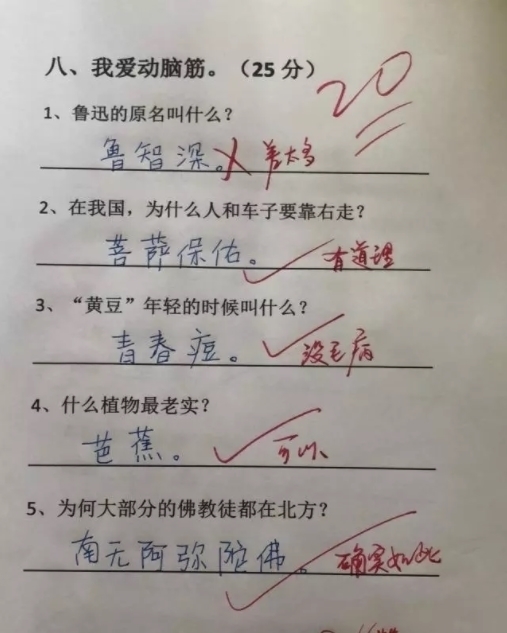 八、我爱动脑筋。（25 分） 20
1、鲁迅的原名叫什么？
鲁智深。 差太多
2、在我国，为什么人和车子要靠右走？
菩萨保佑。 有道理
3、“黄豆”年轻的时候叫什么？
青春痘。 没毛病
4、什么植物最老实？
芭蕉。 可以
5、为何大部分的佛教徒都在北方？
南无阿弥陀佛。 确实如此